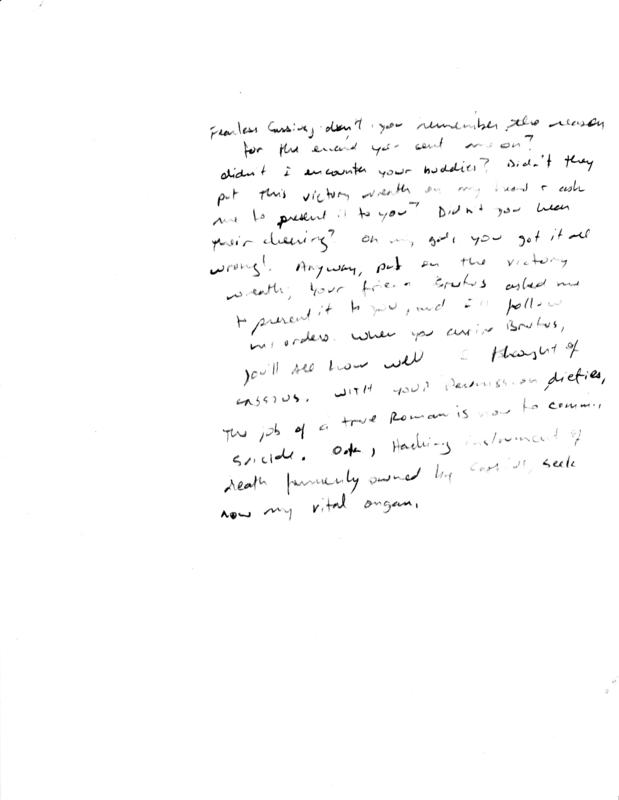 Fearless Cassius, don't you remember the reason
for the errand you sent me on?
didn't I encounter your buddies? Didn't they
put this victory wreath on my head + ask
me to present it to you? Didn't you hear
their cheering? Oh my gods, you got it all
wrong! Anyway, put on the victory
wreath, Your friend Brutus asked me
to present it to you, and I'll follow
his orders. When you arrive Brutus,
you'll see how well I thought of
Cassius. With your Permission, dieties,
The job of a true Roman is now to commit
Suicide. Ok, Hacking instrument of
death formerly owned by Cassius, seek
now my vital organ.